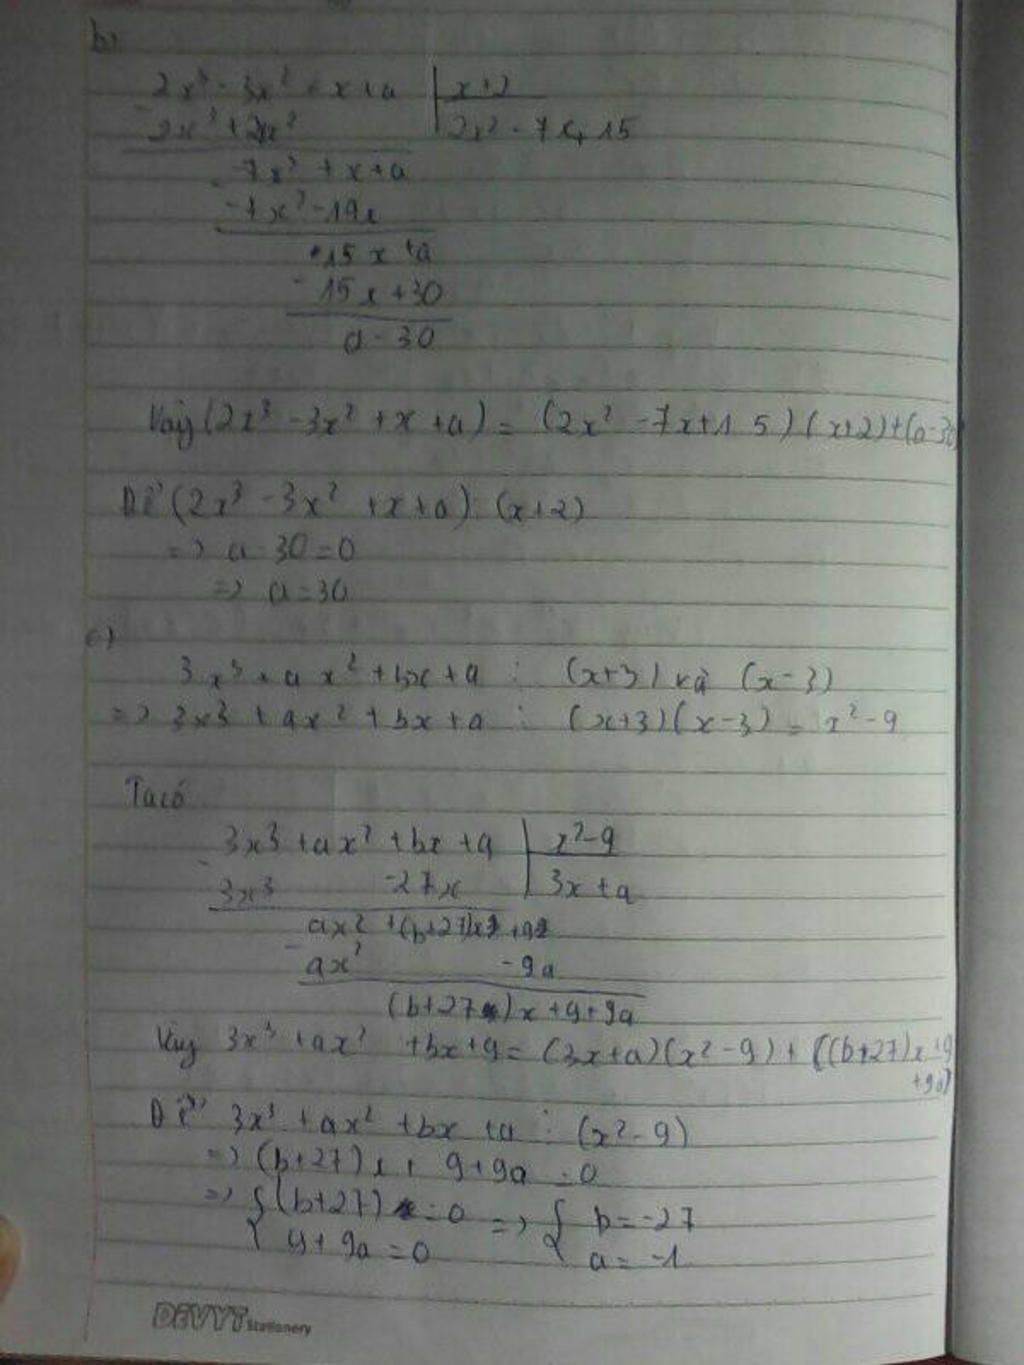 b)
2x³ - 3x² + x + a | x+2
- 2x³ + 4x² | 2x² - 7x + 15
-7x² + x + a
- -7x² - 14x
15x + a
- 15x + 30
a - 30
Vậy (2x³ - 3x² + x + a) = (2x² - 7x + 15)(x+2) + (a-30)
Để (2x³ - 3x² + x + a) ⋮ (x+2)
=> a - 30 = 0
=> a = 30
c)
3x³ + ax² + bx + 9 ⋮ (x+3) và (x-3)
=> 3x³ + ax² + bx + 9 ⋮ (x+3)(x-3) = x² - 9
Ta có
3x³ + ax² + bx + 9 | x² - 9
- 3x³ - 27x | 3x + a
ax² + (b+27)x + 9
- ax² - 9a
(b+27)x + 9 + 9a
Vậy 3x³ + ax² + bx + 9 = (3x+a)(x² - 9) + ((b+27)x + 9
+ 9a)
Để 3x³ + ax² + bx + 9 ⋮ (x² - 9)
=> (b+27)x + 9 + 9a = 0
=> { (b+27) = 0 => { b = -27
9 + 9a = 0 a = -1
DEVYT Stationery